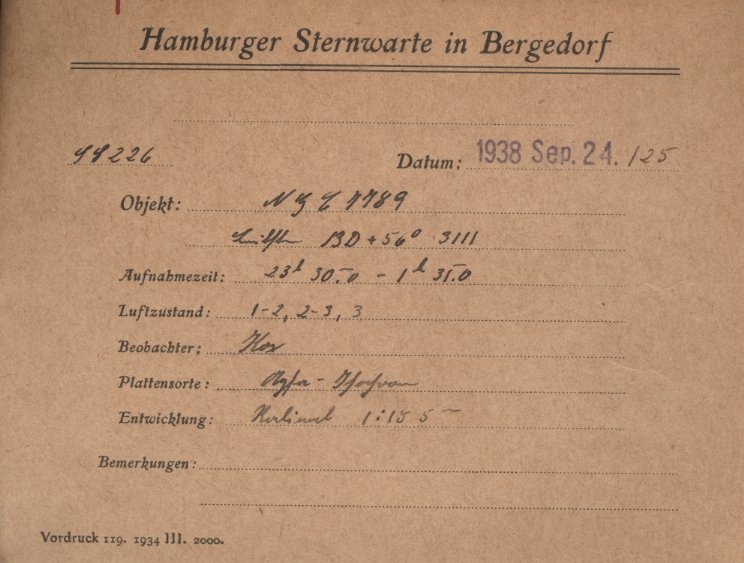 Hamburger Sternwarte in Bergedorf
Datum: 1938 Sep. 24. /25
Objekt: NGC 7789
BD + 56° 3111
Aufnahmezeit: 23h 30.0 - 1h 31.0
Luftzustand: 1-2, 2-3, 3
Beobachter:
Plattensorte: Agfa - Isochrom
Entwicklung: 1:15 5m
Bemerkungen:
Vordruck 119. 1934 III. 2000.